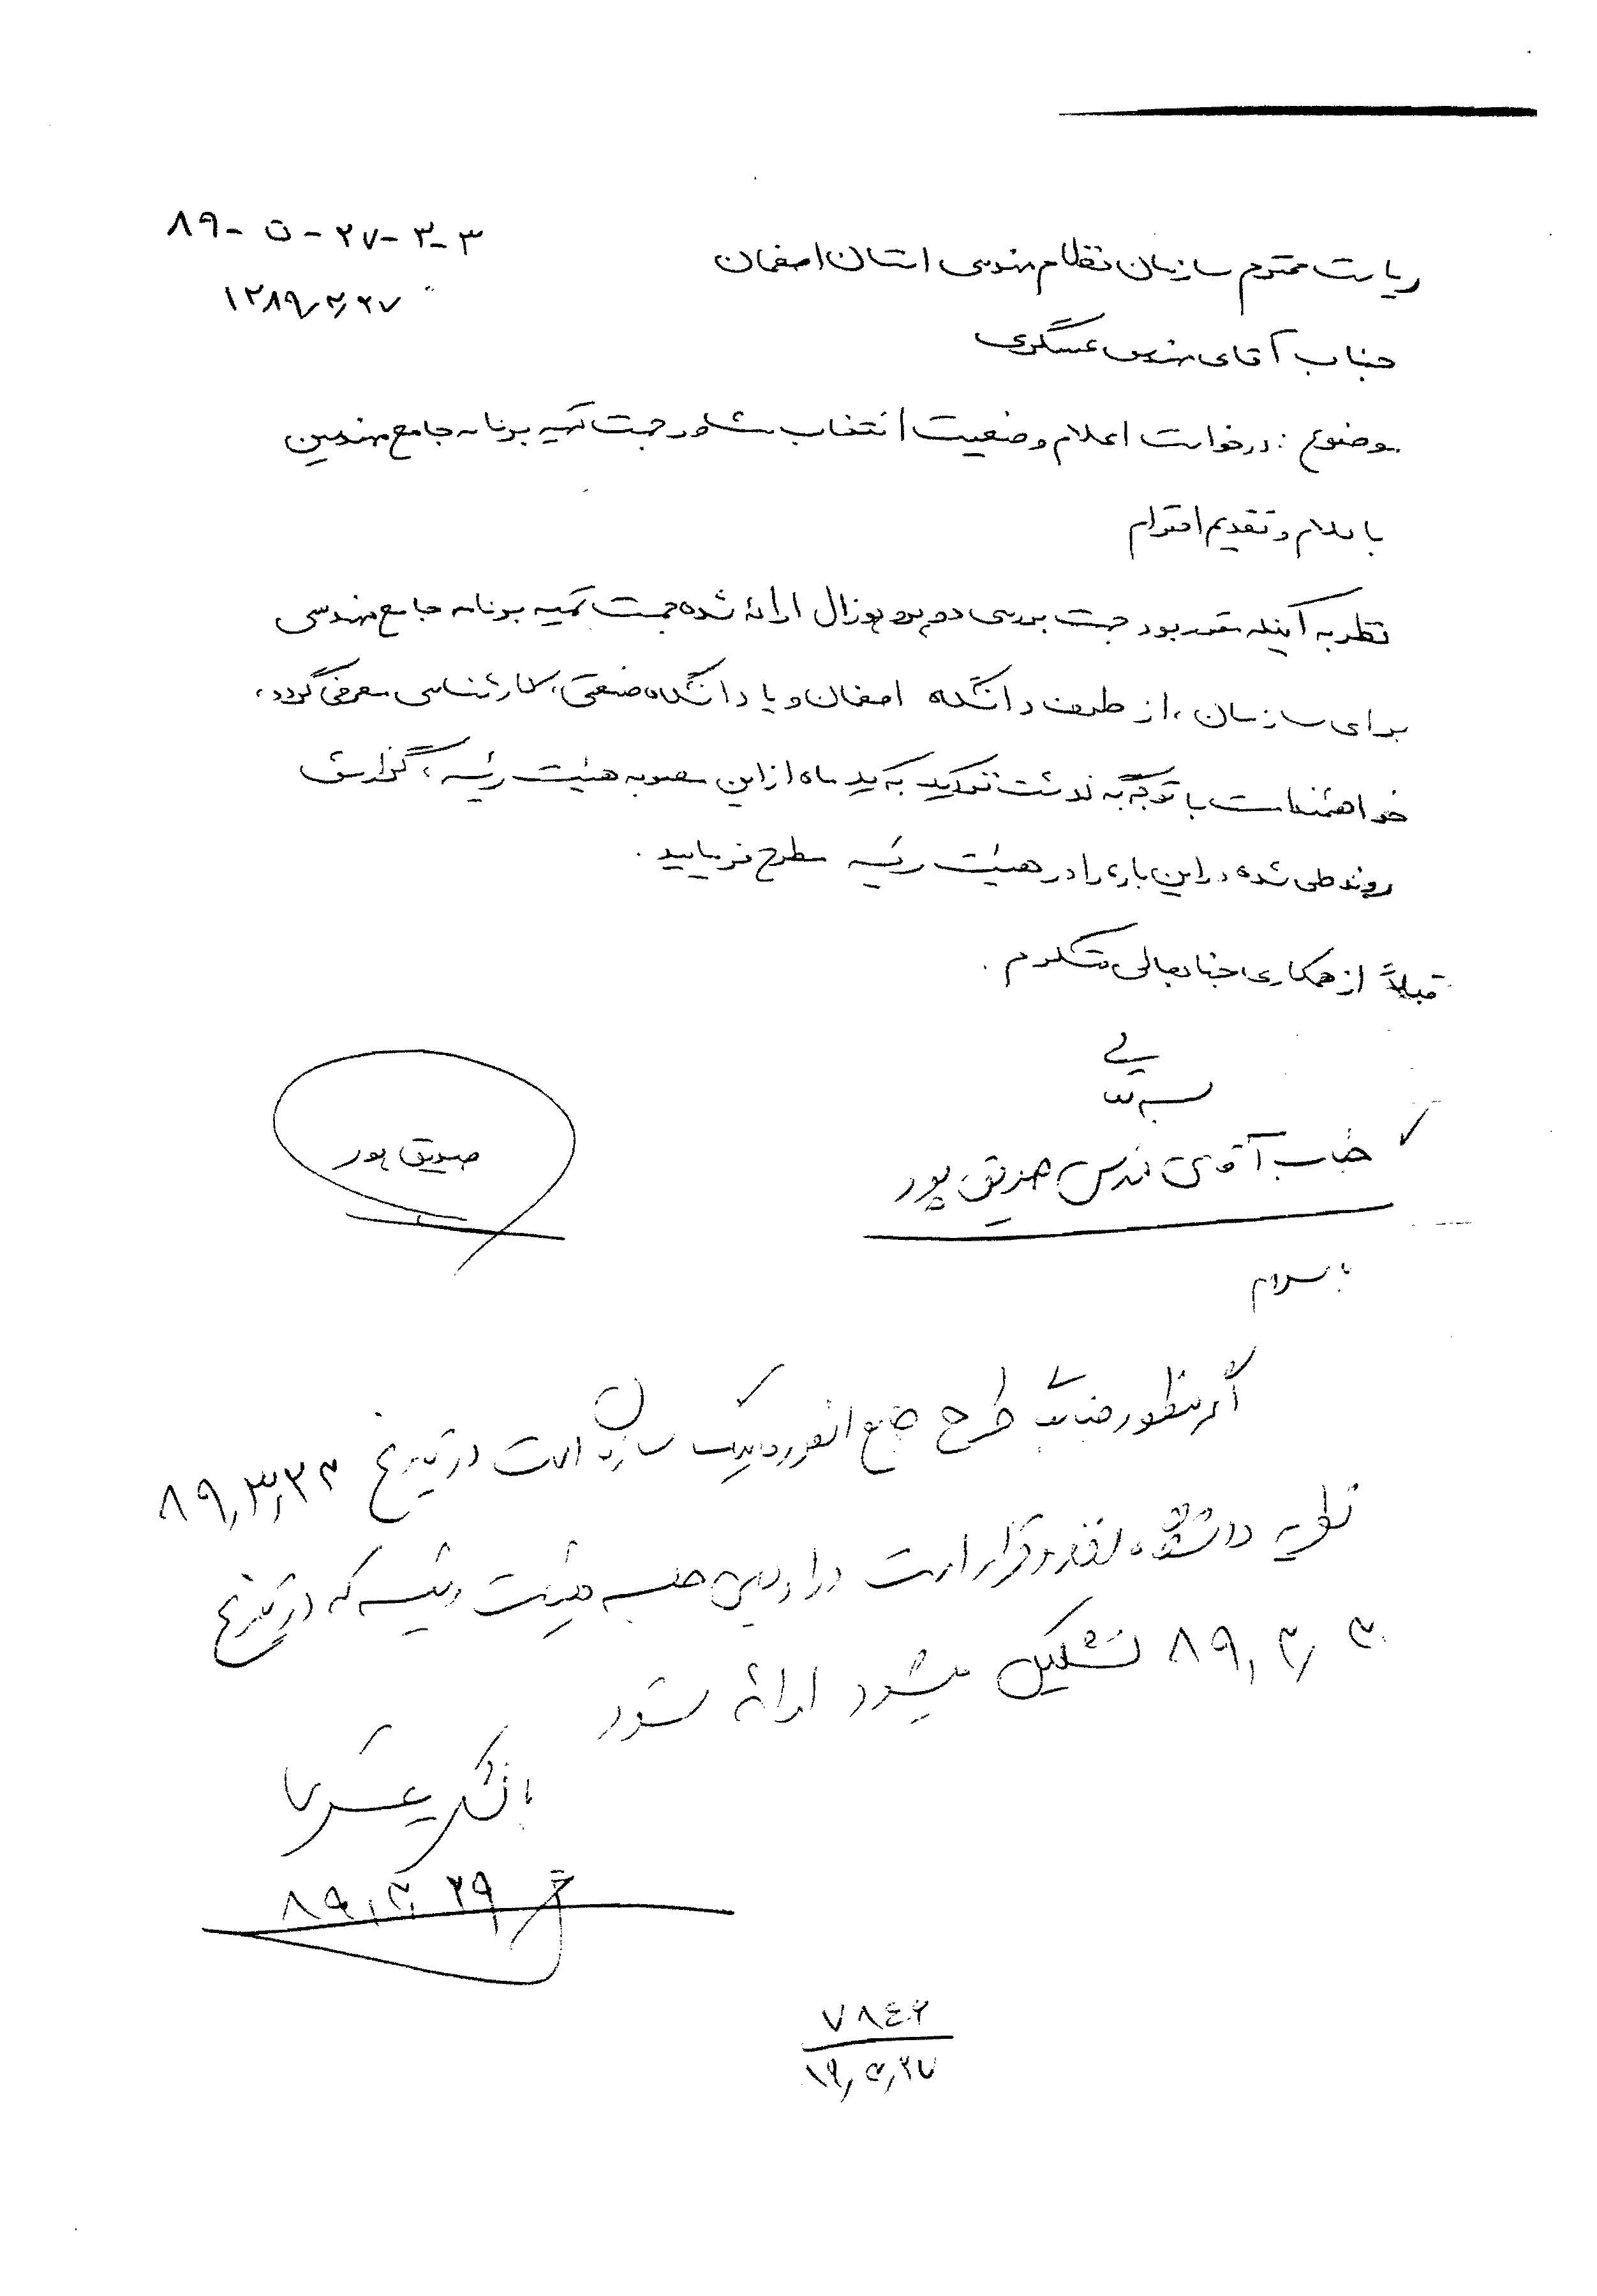 ۸۹- ت - ۲۷-۳-۳
۱۳۸۹/۳/۲۷
ریاست محترم سازمان نظام مهندسی استان اصفهان
جناب آقای مهندس عسگری
موضوع : درخواست اعلام وضعیت انتخاب مشاور جهت تهیه برنامه جامع مهندسین
با سلام و تقدیم احترام
نظر به آینکه مقرر بود جهت بررسی دو پروپوزال ارائه شده جهت تهیه برنامه جامع مهندسی
برای سازمان ، از طرف دانشگاه اصفهان و یا دانشگاه صنعتی، کارشناسی معرفی گردد،
خواهشمنداست با توجه به گذشت نزدیک به یک ماه از این مصوبه هیئت رئیسه ، گزارش
روند طی شده در این باره را در هیئت رئیسه مطرح فرمایید .
قبلاً از همکاری جنابعالی متشکرم .
صدیق پور
جناب آقای مهندس صدیق پور
با سلام
اگر منظور جنابعالی طرح جامع انفورماتیک سازمان است در تاریخ ۸۹/۳/۲۳
نظریه دانشگاه اخذ و قرار است در اولین جلسه هیئت رئیسه که در تاریخ
۸۹/۳/۳۰ تشکیل میشود ارائه شود
با تشکر
۸۹/۳/۲۹
۷۸۴۲
۸۹/۳/۲۷